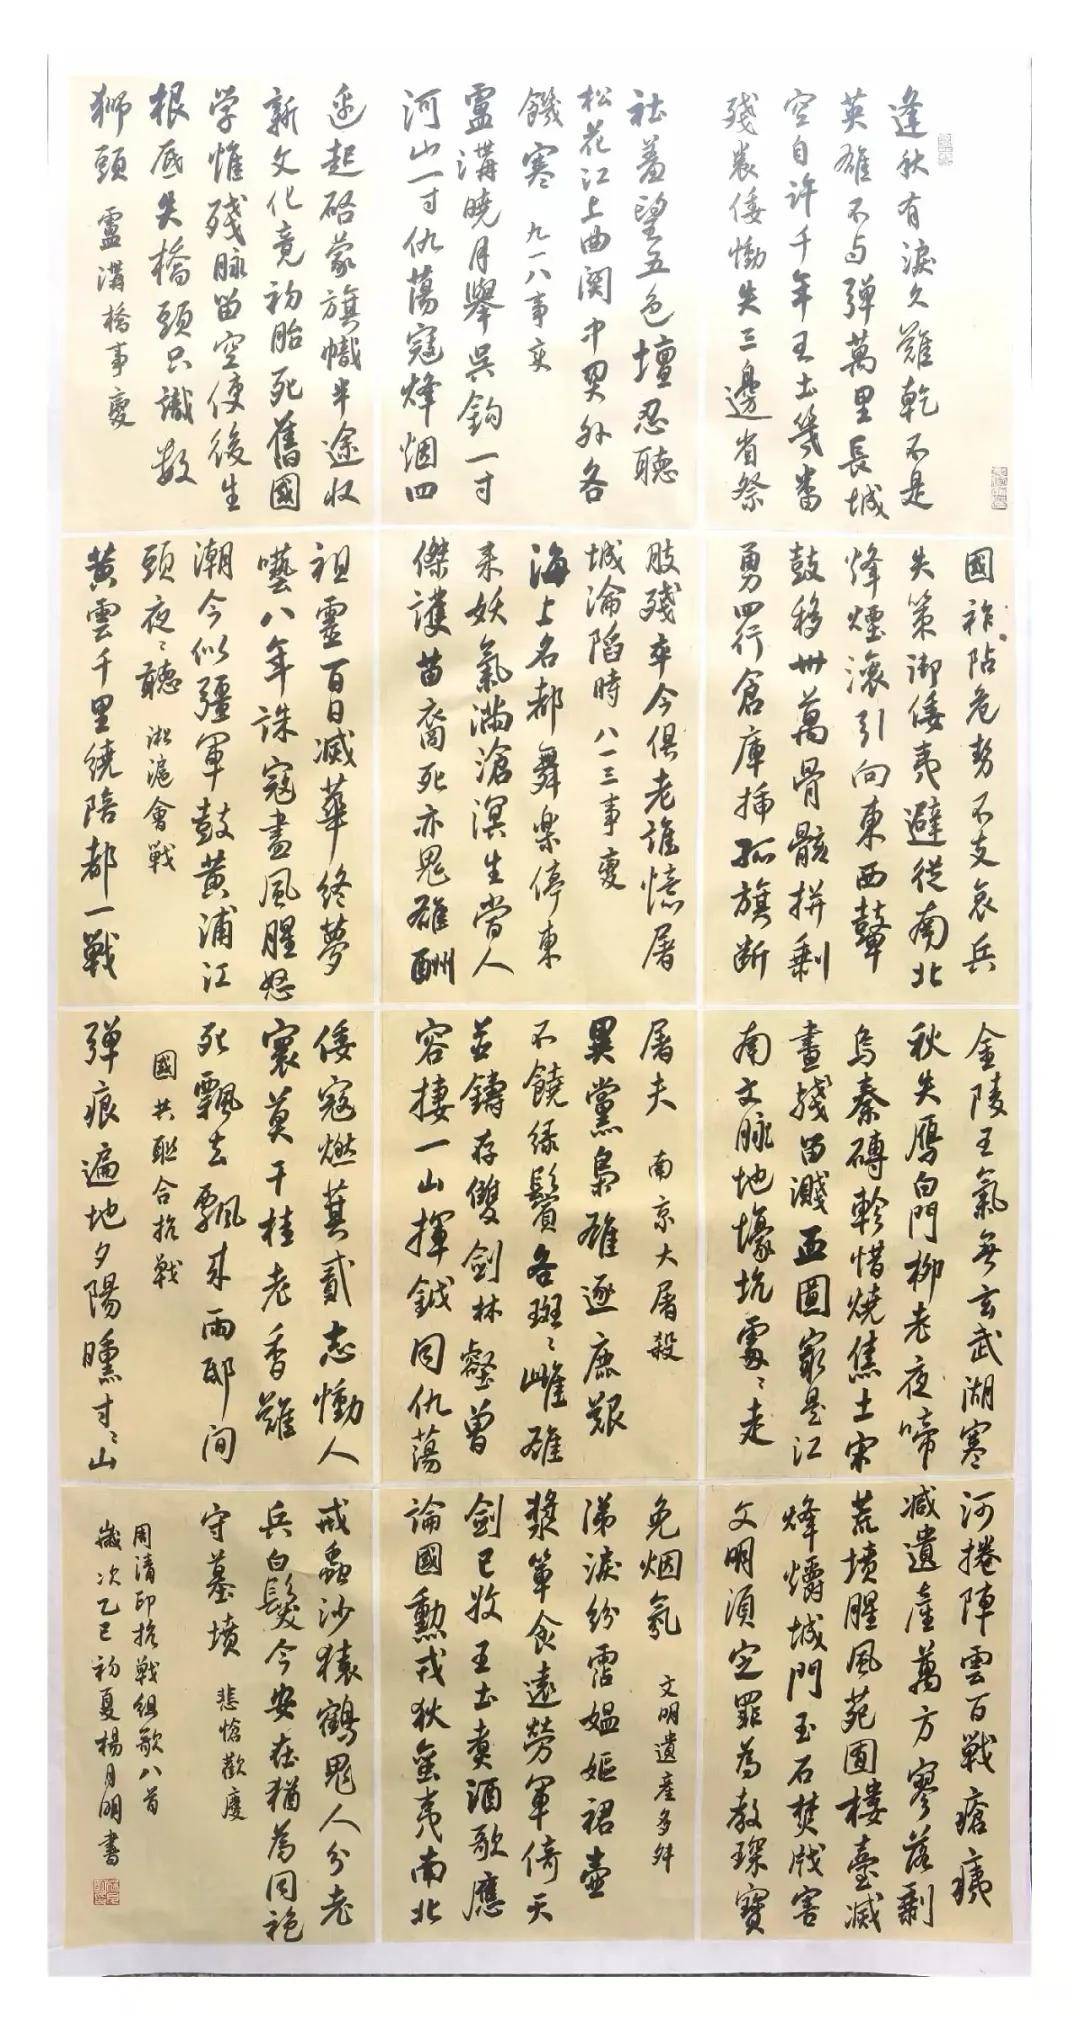 逢秋有淚久難乾不是
英雄不与彈萬里長城
空自许千年王土幾番
殘裳倭慟失三邊省祭
社羞望五色壇忍聽
松花江上曲関中関外各
饑寒 九一八事变
盧溝曉月舉吳鈎一寸
河山一寸仇蕩寇烽烟四
起啓蒙旗幟半途収
新文化竟初胎死舊國
学惟殘脉留空使後生
根底失橋頭只識数
狮頭 盧溝橋事變
國祚阽危勢不支哀兵
失策御倭夷避從南北
烽煙滾引向東西鼙
鼓移卅萬骨骸拼剩
勇四行倉庫插孤旗斷
肢殘卒今俱老誰憶屠
城淪陷時 八一三事變
海上名都舞樂停東
来妖氣滿滄溟生當人
傑護苗裔死亦鬼雄酬
祖靈百日滅華終夢
囈八年誅寇盡風腥怒
潮今似疆軍鼓黄浦江
頭夜〻聽 淞滬會戰
黄雲千里繞陪都一戰
金陵王氣無玄武湖寒
秋失鴈白門柳老夜啼
烏秦磚軫惜燒焦土宋
畫殘留濺血圖家是江
南文脉地壕坑處〻走
屠夫 南京大屠殺
異黨梟雄逐鹿艱
不饒绿鬢各斑〻雌雄
並鑄存雙劍林壑曾
容捿一山揮鉞同仇蕩
倭寇燃萁貳志慟人
寰莫干桂老香難
死飄去飄来雨邮间
國共联合抗戰
彈痕遍地夕陽曛寸〻山
河捲陣雲百戰瘡痍
减遺產萬方寥落剩
荒墳腥風苑囿樓臺滅
烽爝城門玉石焚戕害
文明須定罪為教琛寶
免烟氛 文明遺產多舛
涕淚纷霑媪嫗裙壷
漿簞食遠勞軍倚天
劍已收王土煑酒歌應
論國勳戎狄蠻夷南北
戒蟲沙猿鶴鬼人分老
兵白髮今安在猶為同袍
守墓墳 悲愴歡慶
周清印抗戰组歌八首
歲次乙巳初夏楊月明書